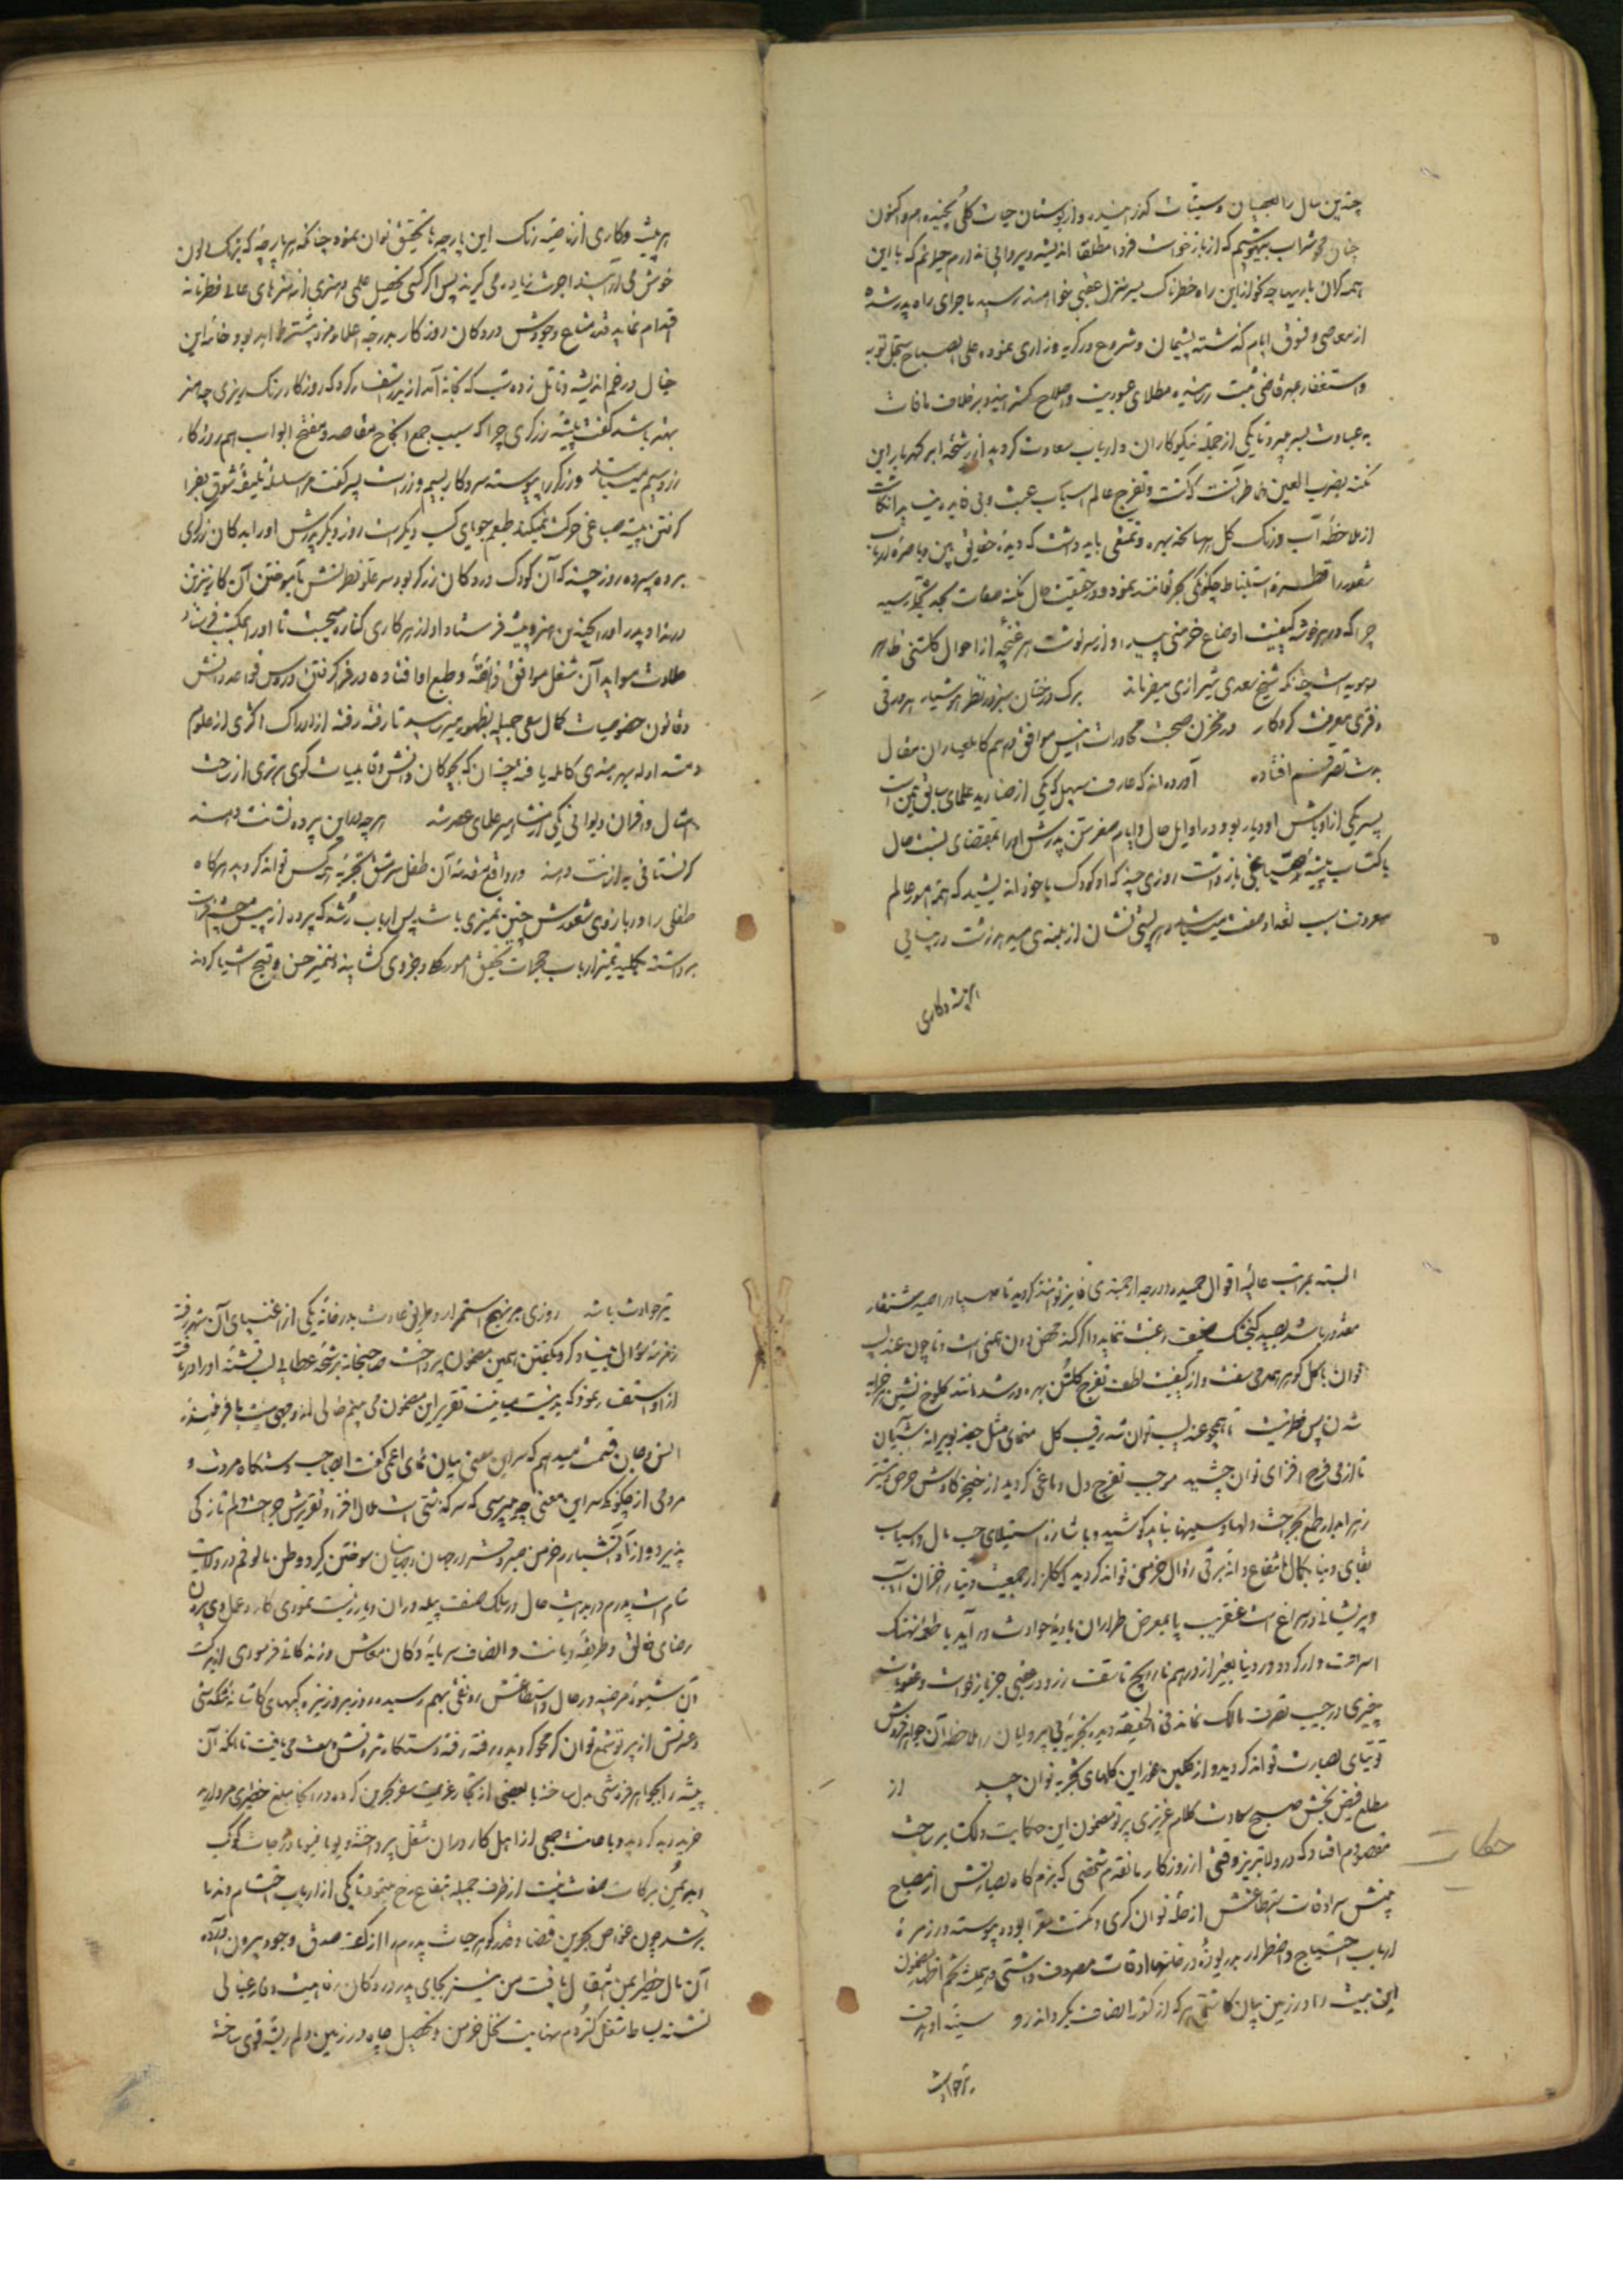 چندین سال را بعصیان و سیئات گذرانیده و از بوستان حیات گلی نچیده‌ام و اکنون
چنان محو شراب بیهوشیم که از بازخواست فردا مطلقا اندیشه و پروایی ندارم حیرانم که با این
همه گران باریها چه گونه ازین راه خطرناک بسر منزل عقبی خواهند رسید باجرای راه پدر شده
از معاصی و فسق ایام گذشته پشیمان و شروع در گریه و زاری نموده علی الصباح سجل توبه
و استغفار بمهر قاضی مثبت رسانیده مطلای عبودیت و اصلاح گسترانیده بر خلاف مافات
به عبادت بسر میبرد تا یکی از جمله نیکوکاران و ارباب سعادت گردید از رشحه ابر گهربار این
نکته بضرب العین خاطر گشت و تفرج عالم اسباب عبث و بی فایده نیست
از ملاحظه آب و رنگ گل بهر بهانه بهره و تمتعی باید داشت که دیده حقایق بین و باصره ارباب
شعور را قطره استنباط چگونگی بحر توانند نمود و در حقیقت حال نکته
چرا که در هر خوشه کیفیت اوضاع خرمنی پیدا و از سرنوشت هر غنچه از احوال گلشنی ظاهر
و هویداست چنانکه شیخ سعدی شیرازی میفرماید برگ درختان سبز در نظر هوشیار هر ورقی
دفتری معرفت کردگار در مخزن صحبت محاورات انیس موافق و هم کامل عیاران مقال
بدست تصرفم افتاده آورده‌اند که عارف سهیل که یکی از صنادید علمای سابق یمن است
پسر یکی از اوباش او دیار بود در اوایل حال و ایام صغر سن پدرش او را بمقتضای نسبت حال
باکتساب پیشه صباغی بازداشت روزی چند که او کودک با خود اندیشید که همه امور عالم
هر پستی نشان از بلندی میدهد
هر پیشه و کاری
هر پیشه و کاری از ناصیه رنگ این پارچه‌ها تحقیق توان نمود چنانکه هر پارچه که برنگ الوان
خوش می‌آرایند اجرت زیاده می‌گیرند پس اگر کسی تحصیل علمی و هنری از هنرهای عالی فطرتانه
اقدام نماید قدر متاع وجودش در دکان روزگار بدرجه اعلا و مزد بیشتر خواهد بود
خیال در خم اندیشه و تأمل زده شب که بخانه آمد از پدر استفسار کرد که روزگار رنگرزی چه هنر
بهتر باشد گفت پیشه زرگری چرا که سبب جمع انجاح مقاصد و مفتح ابواب اهم روزگار
زر و سیم میباشد و زرگر را پیوسته سر و کار بسیم و زر است پسر گفت مرا سلسله سلیقه شوق بفرا
گرفتن پیشه صباغی حرکت نمیکند طبعم جویای کسب دیگر است روز دیگر پدرش او را بدکان زرگری
برده سپرد روز چند که آن کودک در دکان زرگر بود سر علو فطرتش بآموختن آن کار نیز تن
در نداد و پدر او را بچندین هنر و پیشه فرستاد او از هر کاری کناره میجست تا او را بمکتب فرستاد
حلاوت مواید آن شغل موافق ذائقه و طبع او افتاده در فرا گرفتن دروس قواعد دانش
و قانون خصوصیات کمال سعی جمیله بظهور میرسید تا رفته رفته از ادراک اکثری از علوم
متداوله بهره‌مندی کامله یافته چنان که بچوگان دانش و قابلیات گوی برتری از ساحت
امثال و اقران ربوده یکی از مشاهیر علمای عصر شد هر چه در این پرده نشانت دهند
گر نستانی به از آنت دهند و در واقع مقدمه آن طفل سرمشق تجربه همه کس تواند گردید هرگاه
طفلی را در بازوی شعورش چنین تمیزی باشد پس ارباب رشد که پرده از پیش چشم فراست
برداشته بکلید تمیز ارباب جهات تحقیق امور کلی و جزوی گشایند و تمیز حسن و قبح اشیا کردند
البته بمراتب عالیه اقوال حمیده و درجه ارجمندی فایز توانند گردید
معذور باشد بصید گنجشک ضعیف رغبت ننماید و اگر نه محض دون همتی است و تا چون عندلیب
توان با گل گوهر همدمی سفت و از کیفیت لطف تفرج گلشن بهره‌ور شد مانند کلوخ نشین خرابه
شدن پس فطرتیست تا همچو عندلیب توان شد رقیب گل منمای مثل جغد بویرانه آشیان
تا از می فرح افزای توان چشید موجب تفرج دل و دماغی گردید از خنجر کاوش حرص و نیشتر
زهرابدار طمع بجراحت دلها و سینها نباید کوشید و باشاره استیلای حب مال و اسباب
بقای دنیا بکمال انتفاع دانه برقی زوال خرمن تواند گردید که گلزار جمعیت دنیا را خزان آسیب
و پریشانی در سراغ است عنقریب پا بمعرض طراران بادیه حوادث درآید یا طعمه نهنگ
اسراحت وار گردد و در دنیا بغیر از درهم ناروایج تأسف زر و در عقبی جز بازخواست و عقوبات
چیزی در جیب تصرف مالک نماند فی الحقیقه دیده تجربه بی‌پروایان را ملاحظه آن جواهر فروش
توتیای بصارت تواند گردید و از گلبن مغز این گلهای تجربه توان چید از
مطلع فیض بخش صبح سعادت کلام عزیزی پرتو مضمون این حکایت دلکش بر ساحت
مقصودم افتاد که در ولا تبریز وقتی از روزگار ماتقدم شخصی که بزم گاه بصارتش از مصباح
بینش ساده و ساحت استطاعتش از حله توانگری و مکنت معرا بود پیوسته در زمره
ارباب احتیاج و اضطرار بدریوزه در خانها اوقات مصروف داشتی و همیشه تخم اظهار مضمون
این بیت را در زمین بیان کاشتی هر که از کوی انصاف بگرداند رو سینه او هدف
تیر حوادث
حکایت
تیر حوادث باشد روزی بر نهج استمرار و طریق عادت بدر خانه یکی از اغنیای آن شهر رفته
زمزمه سؤال بنیاد کرد و بگفتن همین مضمون پرداخت صاحبخانه برشحه عطایی لب تشنه او را دریافته
از او استفسار نمود که بدینسان مبانیت تقریر این مضمون می‌بینم خالی از وجهی نیست
قسمت میدهم که سر این معنی بیان نمای اعمی گفت ای صاحب دستگاه مروت و
مردمی از چگونگی سر این معنی چه میپرسی که سرگذشتی است ملال افزا و تقریرش جراحت دلم تازگی
پذیرد و از آه آتشبار خرمن صبر و قرار در جهان و جهانیان سوختن گیرد و وطن مالوفم در ولایت
شام است پدرم در بدایت حال در سلک صنف پیله‌وران دیار زیست نمودی کار و عمل وی مقرون
رضای خالق و طریقه دیانت و انصاف سرمایه دکان معاش و زندگانی فرمودی از برکت
آن شیوه مرضیه در حال و استطاعتش رونقی بهم رسیده روز بروز نیزه
و عسرتش از پرتو شمع توانگری محو گردیده رفته رفته دستگاه ثروتش وسعت می‌یافت تا آنکه آن
پیشه را بجواهر فروشی مبدل ساخته با بعضی از تجار عزیمت سفر بحرین کرده در آنجا مبلغ خطیری مروارید
خرید گردید و با صانت جمعی از اهل کار در آن شغل پرداخته یوما فیوما درجات کوکب
امیدش بیمن برکات صفات نیت از طرف جمیله ارتفاع رخ مینمود تا یکی از ارباب احتشام و ندما
برشد چون غواص بحرین قضا و قدر گوهر حیات پدرم را از کف صدف وجود بیرون آورده
آن مال خطیر بمن انتقال یافت من نیز بجای پدر در دکان رفاهیت و فارغبالی
نشسته بساط شغل گستردم نهایت نخل حرص و تحصیل جاه در زمین دلم ریشه قوی ساخته